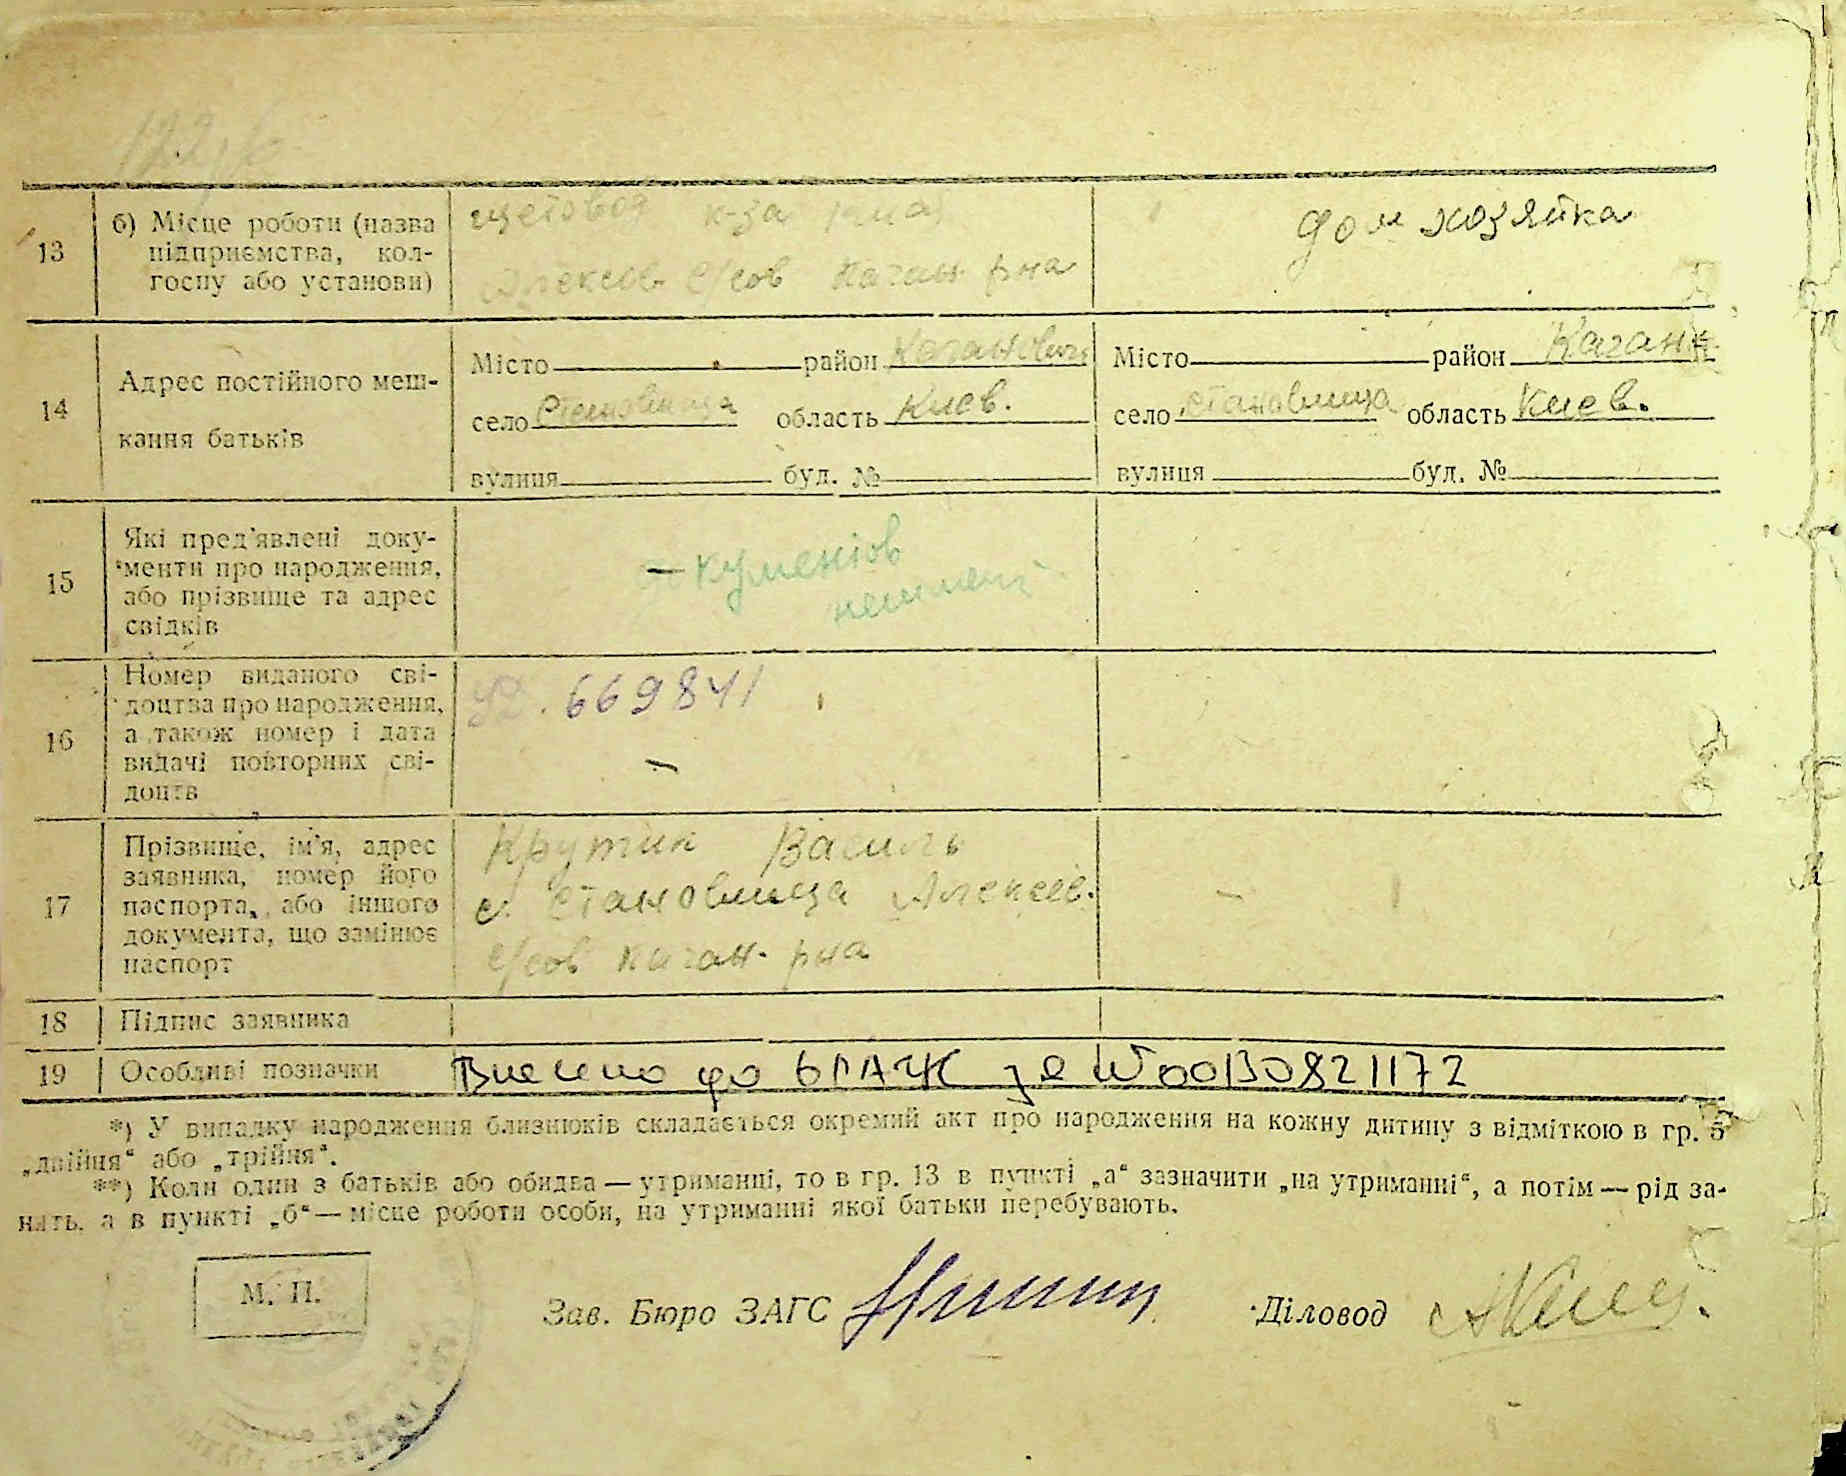 13
б) Місце роботи (назва
підприємства, кол-
госпу або установи)
к-за
с/сов Каган р-на
дом хозяйка
14
Адрес постійного меш-
кання батьків
Місто район Каганович
село Становища область Киев.
вулиця буд. №
Місто район Каган
село Становища область Киев.
вулиця буд. №
15
Які пред'явлені доку-
менти про народження,
або прізвище та адрес
свідків
16
Номер виданого сві-
доцтва про народження,
а також номер і дата
видачі повторних сві-
доцтв
669841
17
Прізвище, ім'я, адрес
заявника, номер його
паспорта, або іншого
документа, що замінює
паспорт
Василь
с. Становища Алексеев.
с/сов Каган. р-на
18
Підпис заявника
19
Особливі позначки
Внесено до за №00130821172
*) У випадку народження близнюків складається окремий акт про народження на кожну дитину з відміткою в гр. 5
„двійня“ або „трійня“.
**) Коли один з батьків або обидва — утриманці, то в гр. 13 в пункті „а“ зазначити „на утриманні“, а потім — рід за-
нять, а в пункті „б“ — місце роботи особи, на утриманні якої батьки перебувають.
М. П.
Зав. Бюро ЗАГС
Діловод